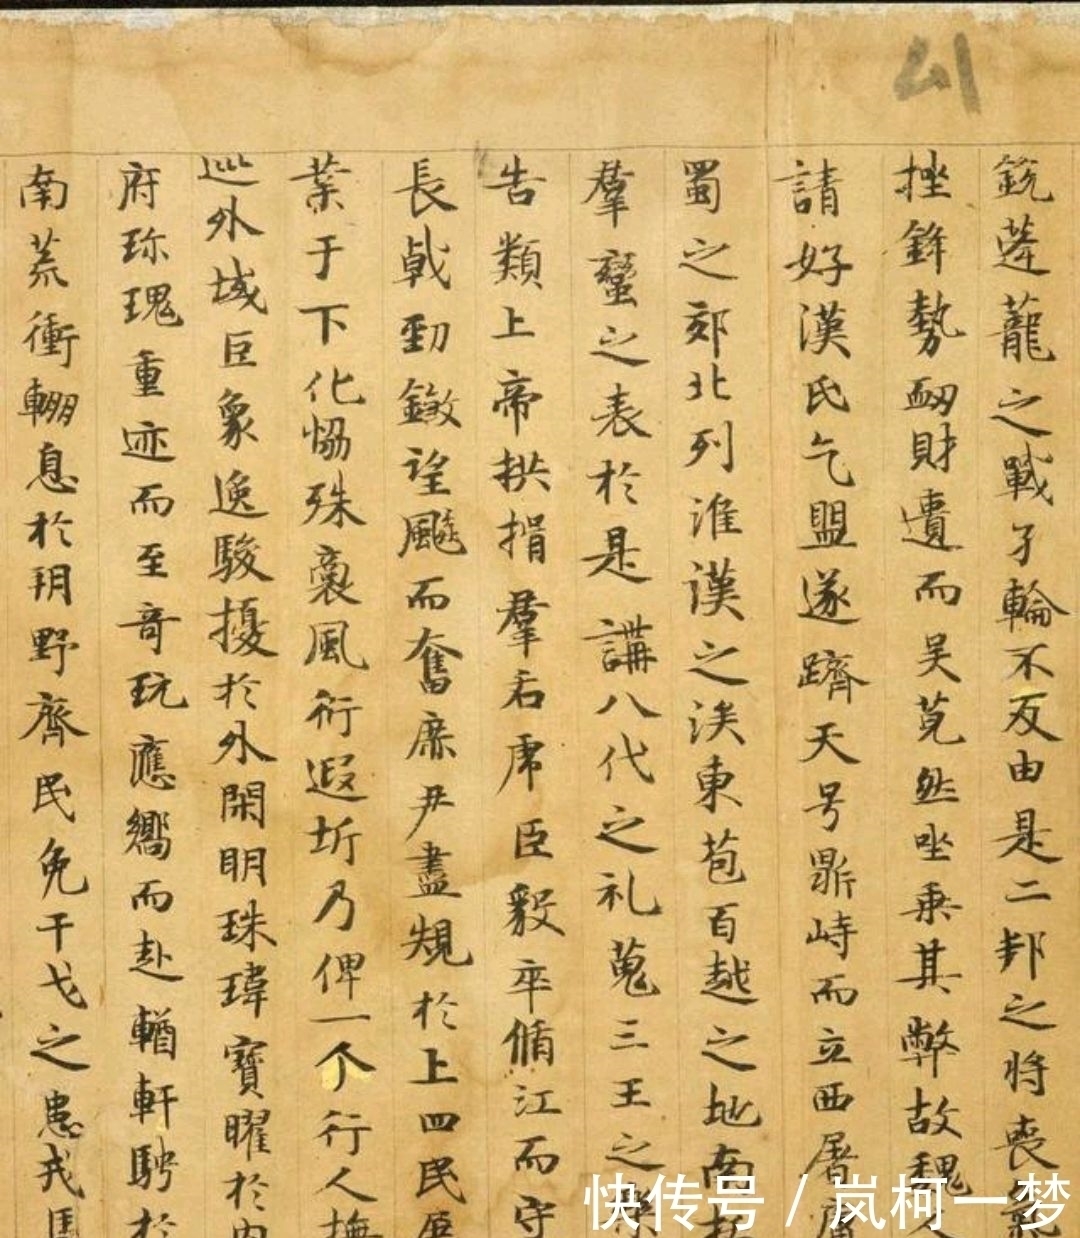 銳蓬蘢之戰孑輪不反由是二邦之將喪
挫鋒勢衄財遺而吴莞然坐乗其弊故魏人
請好漢氏乞盟遂躋天号鼎峙而立西屠
蜀之郊北列淮漢之涘東苞百越之地南括
羣蠻之表於是講八代之礼蒐三王之樂
告類上帝拱揖羣后席臣毅卒循江而守
長戟勁鎩望飈而奮庶尹盡規於上四民
業于下化恊殊裔風衍遐圻乃俾一个行人撫
巡外域巨象逸駿擾於外閑明珠瑋寶曜於内
府珎瑰重迹而至奇玩應嚮而赴輶軒騁於
南荒衝輣息於朔野齊民免干戈之患戎馬
快传号 / 岚柯一梦